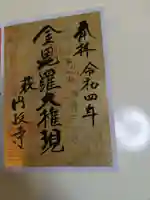 奉拝 令和四年
金毘羅大権現
萩 円政寺